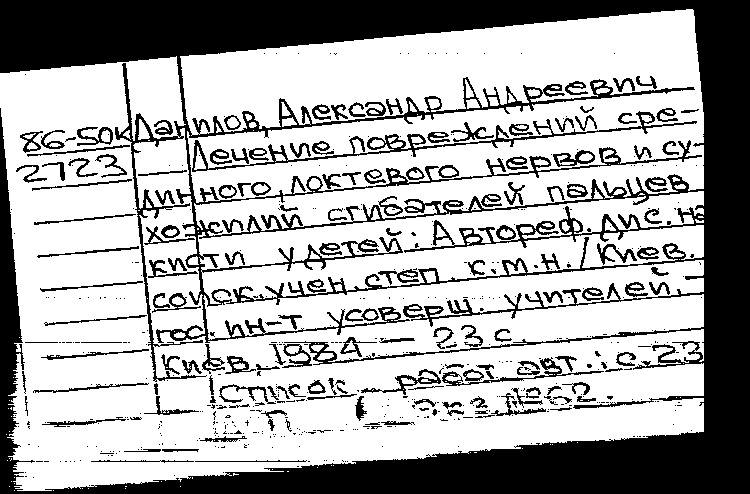 Данилов, Александр Андреевич.
86-50к
2723
Лечение повреждений сре-
динного, локтевого нервов и су-
хожилий сгибателей пальцев
кисти у детей: Автореф. дис. на
соиск. учен. степ. к.м.н. / Киев.
гос. ин-т усоверш. учителей. –
Киев, 1984. — 23 с.
Список работ авт.: с. 23
Экз. №62.